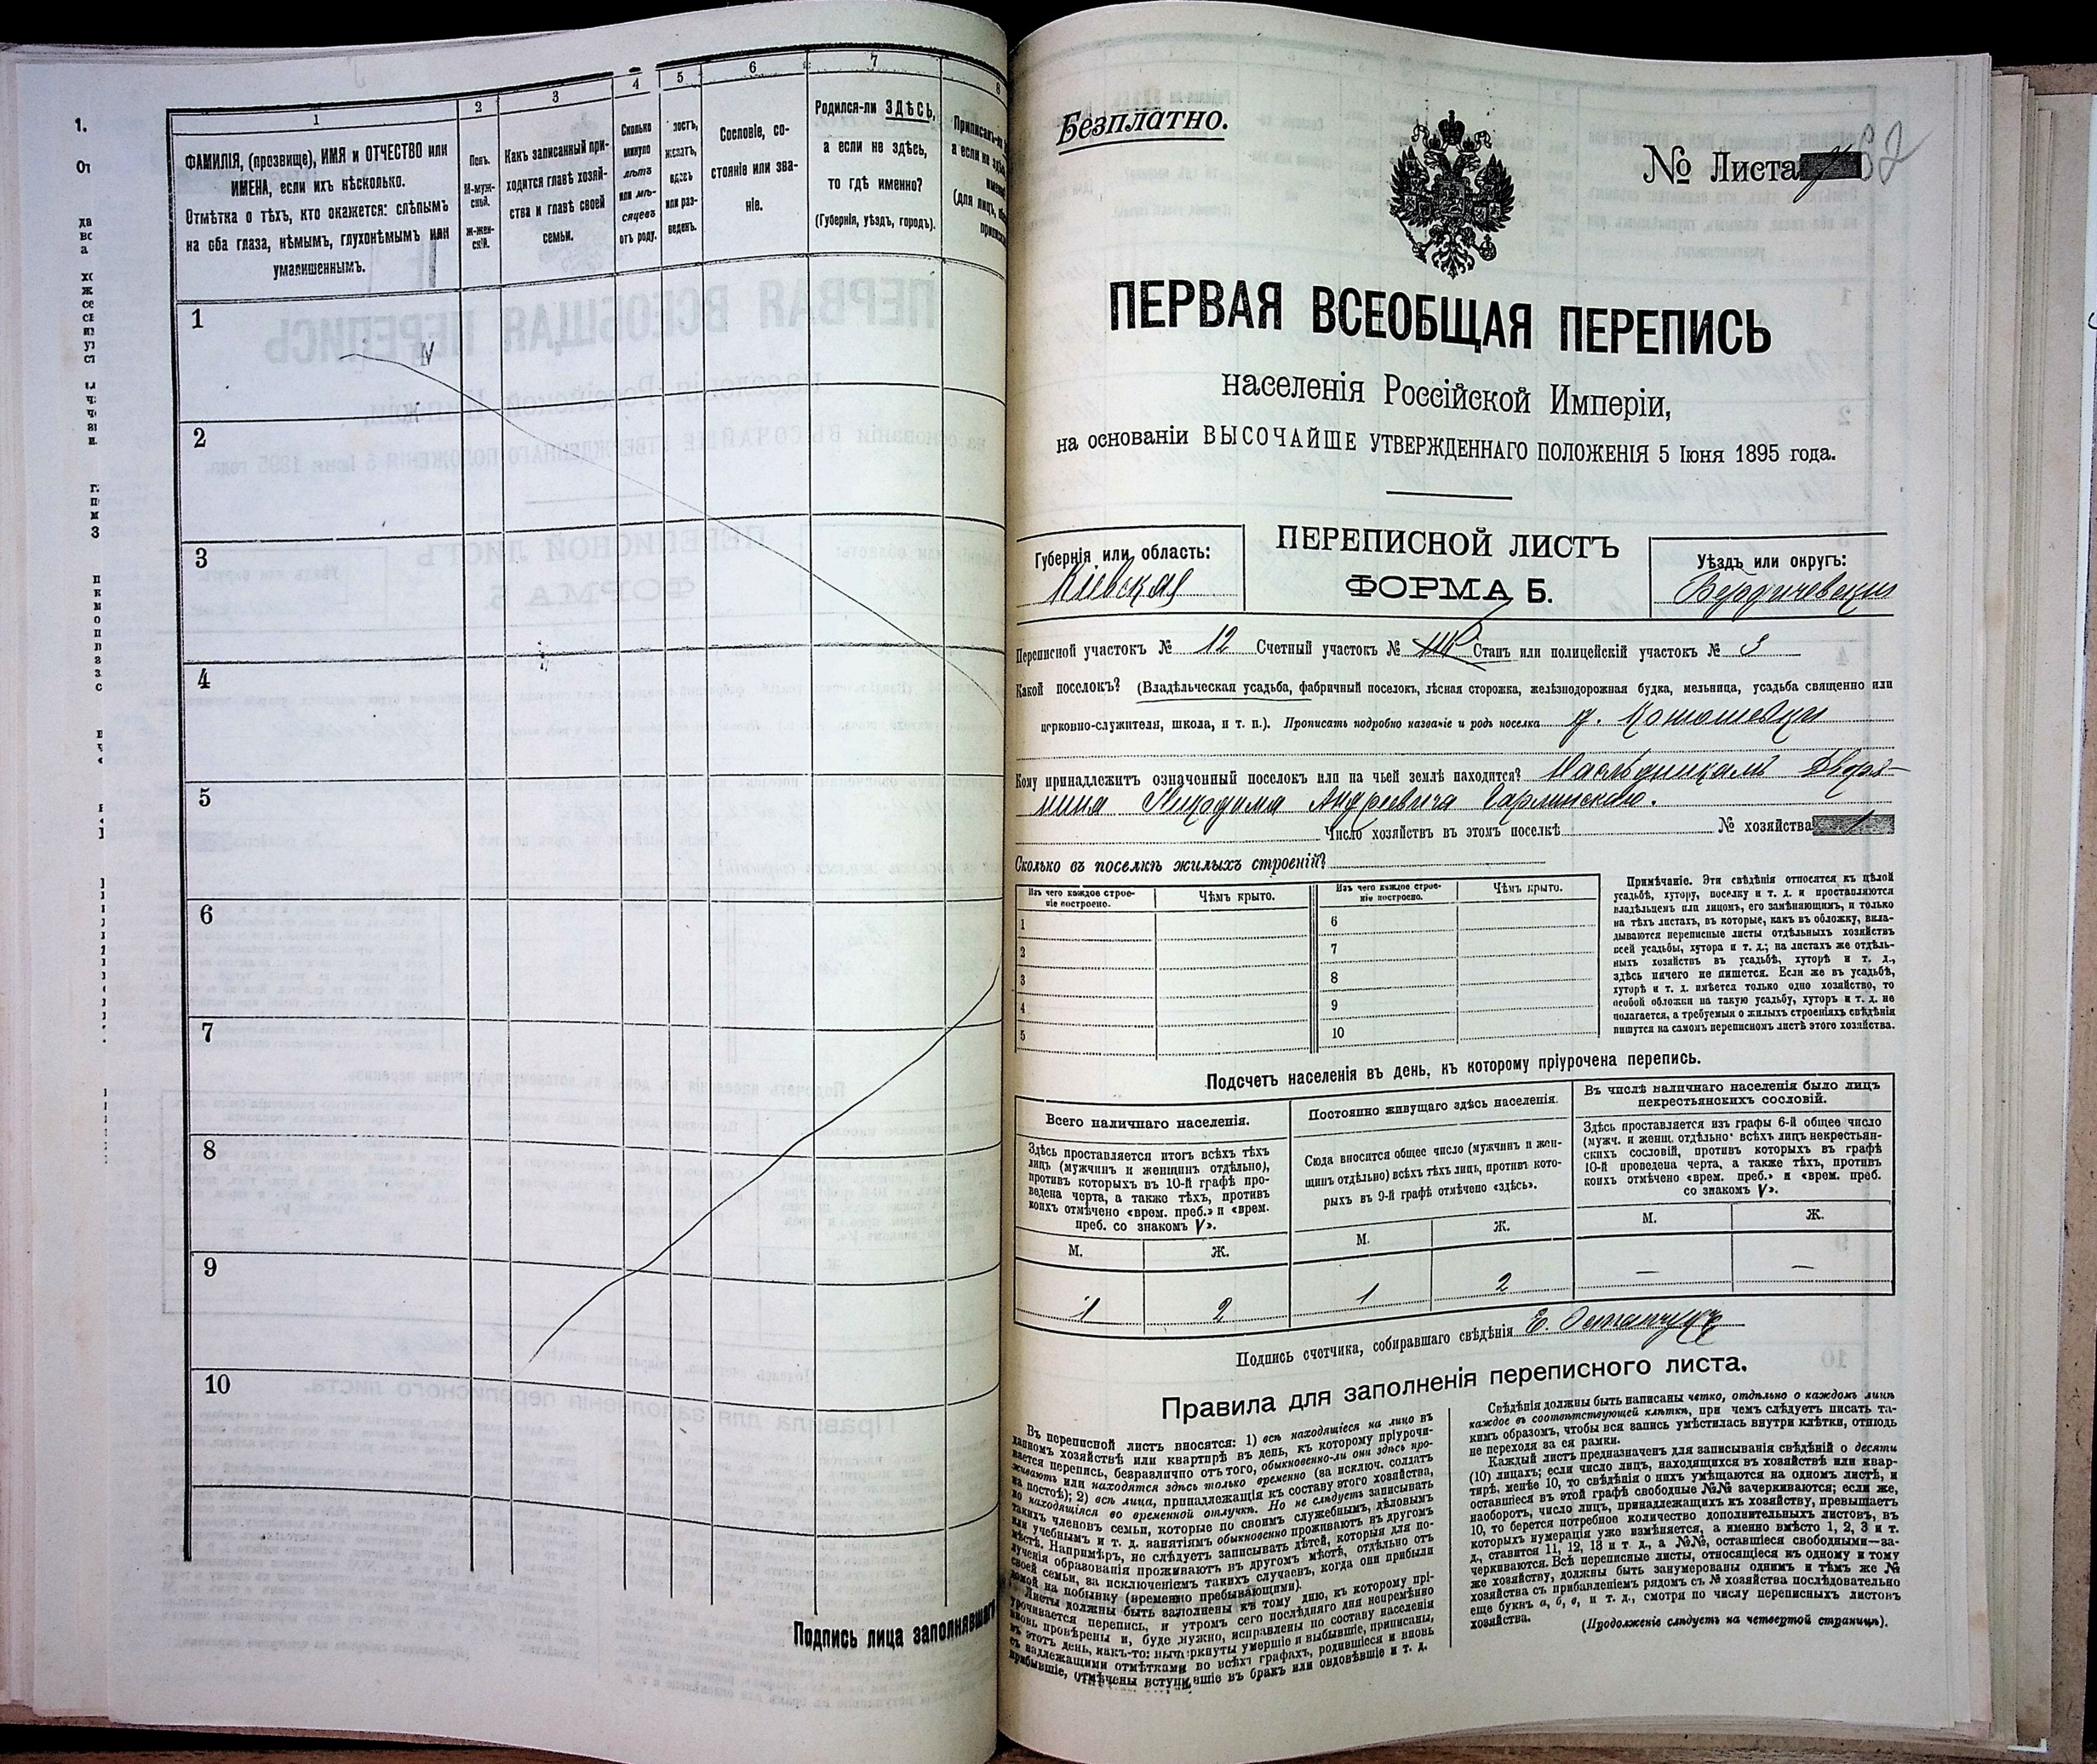 1
ФАМИЛІЯ, (прозвище), ИМЯ и ОТЧЕСТВО или
ИМЕНА, если ихъ нѣсколько.
Отмѣтка о тѣхъ, кто окажется: слѣпымъ
на оба глаза, нѣмымъ, глухонѣмымъ или
умалишеннымъ.
2
Полъ.
М-муж-
ской.
Ж-жен-
скій.
3
Какъ записанный при-
ходится главѣ хозяй-
ства и главѣ своей
семьи.
4
Сколько
минуло
лѣтъ
или мѣ-
сяцевъ
отъ роду.
5
лостъ,
женатъ,
вдовъ
или раз-
веденъ.
6
Сословіе, со-
стояніе или зва-
ніе.
7
Родился-ли ЗДѢСЬ,
а если не здѣсь,
то гдѣ именно?
(Губернія, уѣздъ, городъ).
8
1
2
3
4
5
6
7
8
9
10
Подпись лица заполнявшаго
Безплатно.
№ Листа
62
ПЕРВАЯ ВСЕОБЩАЯ ПЕРЕПИСЬ
населенія Россійской Имперіи,
на основаніи ВЫСОЧАЙШЕ УТВЕРЖДЕННАГО ПОЛОЖЕНІЯ 5 Іюня 1895 года.
Губернія или область:
Кіевская
ПЕРЕПИСНОЙ ЛИСТЪ
ФОРМА Б.
Уѣздъ или округъ:
Бердичевскій
Переписной участокъ № 12 Счетный участокъ № Станъ или полицейскій участокъ № 3
Какой поселокъ? (Владѣльческая усадьба, фабричный поселокъ, лѣсная сторожка, желѣзнодорожная будка, мельница, усадьба священно или
церковно-служителя, школа, и т. п.). Прописать подробно названіе и родъ поселка д. Конюшевки
Кому принадлежитъ означенный поселокъ или на чьей землѣ находится? Наслѣдникамъ Дворя-
нина Никодима Андреевича Гарлинскаго.
Число хозяйствъ въ этомъ поселкѣ № хозяйства 1
Сколько въ поселкѣ жилыхъ строеній?
Изъ чего каждое строе-
ніе построено.
Чѣмъ крыто.
Изъ чего каждое строе-
ніе построено.
Чѣмъ крыто.
1
2
3
4
5
6
7
8
9
10
Примѣчаніе. Эти свѣдѣнія относятся къ цѣлой
усадьбѣ, хутору, поселку и т. д. и проставляются
владѣльцемъ или лицомъ, его замѣняющимъ, и только
на тѣхъ листахъ, въ которые, какъ въ обложку, вкла-
дываются переписные листы отдѣльныхъ хозяйствъ
всей усадьбы, хутора и т. д.; на листахъ же отдѣль-
ныхъ хозяйствъ въ усадьбѣ, хуторѣ и т. д.,
здѣсь ничего не пишется. Если же въ усадьбѣ,
хуторѣ и т. д. имѣется только одно хозяйство, то
особой обложки на такую усадьбу, хуторъ и т. д. не
полагается, а требуемыя о жилыхъ строеніяхъ свѣдѣнія
пишутся на самомъ переписномъ листѣ этого хозяйства.
Подсчетъ населенія въ день, къ которому пріурочена перепись.
Всего наличнаго населенія.
Здѣсь проставляется итогъ всѣхъ тѣхъ
лицъ (мужчинъ и женщинъ отдѣльно),
противъ которыхъ въ 10-й графѣ про-
ведена черта, а также тѣхъ, противъ
коихъ отмѣчено «врем. преб.» и «врем.
преб. со знакомъ V».
Постоянно живущаго здѣсь населенія.
Сюда вносится общее число (мужчинъ и жен-
щинъ отдѣльно) всѣхъ тѣхъ лицъ, противъ кото-
рыхъ въ 9-й графѣ отмѣчено «здѣсь».
Въ числѣ наличнаго населенія было лицъ
некрестьянскихъ сословій.
Здѣсь проставляется изъ графы 6-й общее число
(мужч. и женщ. отдѣльно) всѣхъ лицъ некрестьян-
скихъ сословій, противъ которыхъ въ графѣ
10-й проведена черта, а также тѣхъ, противъ
коихъ отмѣчено «врем. преб.» и «врем. преб.
со знакомъ V».
М. Ж. М. Ж. М. Ж.
1 2 1 2 — —
Подпись счетчика, собиравшаго свѣдѣнія Е. Остапчукъ
Правила для заполненія переписного листа.
Въ переписной листъ вносятся: 1) всѣ находящіеся на лицо въ
данномъ хозяйствѣ или квартирѣ въ день, къ которому пріурочи-
вается перепись, безразлично отъ того, обыкновенно-ли они здѣсь про-
живаютъ или находятся здѣсь только временно (за исключ. солдатъ
на постоѣ); 2) всѣ лица, принадлежащія къ составу этого хозяйства,
но находящіяся во временной отлучкѣ. Но не слѣдуетъ записывать
такихъ членовъ семьи, которые по своимъ служебнымъ, дѣловымъ
или учебнымъ и т. д. занятіямъ обыкновенно проживаютъ въ другомъ
мѣстѣ. Напримѣръ, не слѣдуетъ записывать дѣтей, которыя для по-
лученія образованія проживаютъ въ другомъ мѣстѣ, отдѣльно отъ
своей семьи, за исключеніемъ такихъ случаевъ, когда они прибыли
домой на побывку (временно пребывающими).
Листы должны быть заполнены къ тому дню, къ которому прі-
урочивается перепись, и утромъ сего послѣдняго дня непремѣнно
вновь провѣрены и, буде нужно, исправлены по составу населенія
въ этотъ день, какъ-то: вычеркнуты умершіе и выбывшіе, приписаны,
съ надлежащими отмѣтками во всѣхъ графахъ, родившіеся и вновь
прибывшіе, отмѣчены вступившіе въ бракъ или овдовѣвшіе и т. д.
Свѣдѣнія должны быть написаны четко, отдѣльно о каждомъ лицѣ
каждое въ соотвѣтствующей клѣткѣ, при чемъ слѣдуетъ писать та-
кимъ образомъ, чтобы вся запись умѣстилась внутри клѣтки, отнюдь
не переходя за ея рамки.
Каждый листъ предназначенъ для записыванія свѣдѣній о десяти
(10) лицахъ; если число лицъ, находящихся въ хозяйствѣ или квар-
тирѣ, менѣе 10, то свѣдѣнія о нихъ умѣщаются на одномъ листѣ, и
оставшіеся въ этой графѣ свободные №№ зачеркиваются; если же,
наоборотъ, число лицъ, принадлежащихъ къ хозяйству, превышаетъ
10, то берется потребное количество дополнительныхъ листовъ, въ
которыхъ нумерація уже измѣняется, а именно вмѣсто 1, 2, 3 и т.
д., ставится 11, 12, 13 и т. д., а №№, оставшіеся свободными—за-
черкиваются. Всѣ переписные листы, относящіеся къ одному и тому
же хозяйству, должны быть занумерованы однимъ и тѣмъ же №
хозяйства съ прибавленіемъ рядомъ съ № хозяйства послѣдовательно
еще буквъ а, б, в, и т. д., смотря по числу переписныхъ листовъ
хозяйства.
(Продолженіе слѣдуетъ на четвертой страницѣ).